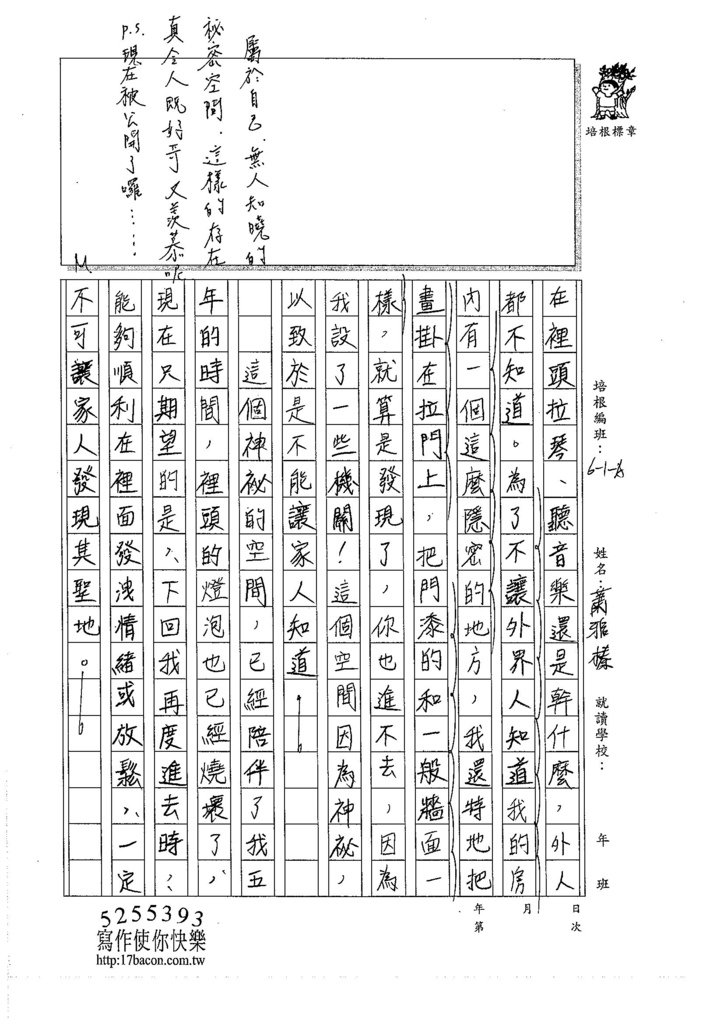 培根標章
培根編班：6-1-
姓名：蕭雅榛
就讀學校：
年 班
年 月 日
第 次
在裡頭拉琴、聽音樂還是幹什麼，外人
都不知道。為了不讓外界人知道我的房
內有一個這麼隱密的地方，我還特地把
畫掛在拉門上，把門漆的和一般牆面一
樣，就算是發現了，你也進不去，因為
我設了一些機關！這個空間因為神祕，
以致於是不能讓家人知道。
這個神祕的空間，已經陪伴了我五
年的時間，裡頭的燈泡也已經燒壞了，
現在只期望的是，下回我再度進去時，
能夠順利在裡面發洩情緒或放鬆，一定
不可讓家人發現其聖地。
屬於自己、無人知曉的
祕密空間，這樣的存在
真令人既好奇又羨慕呢
p.s.現在被公開了囉……
M.
5255393
寫作使你快樂
http:17bacon.com.tw